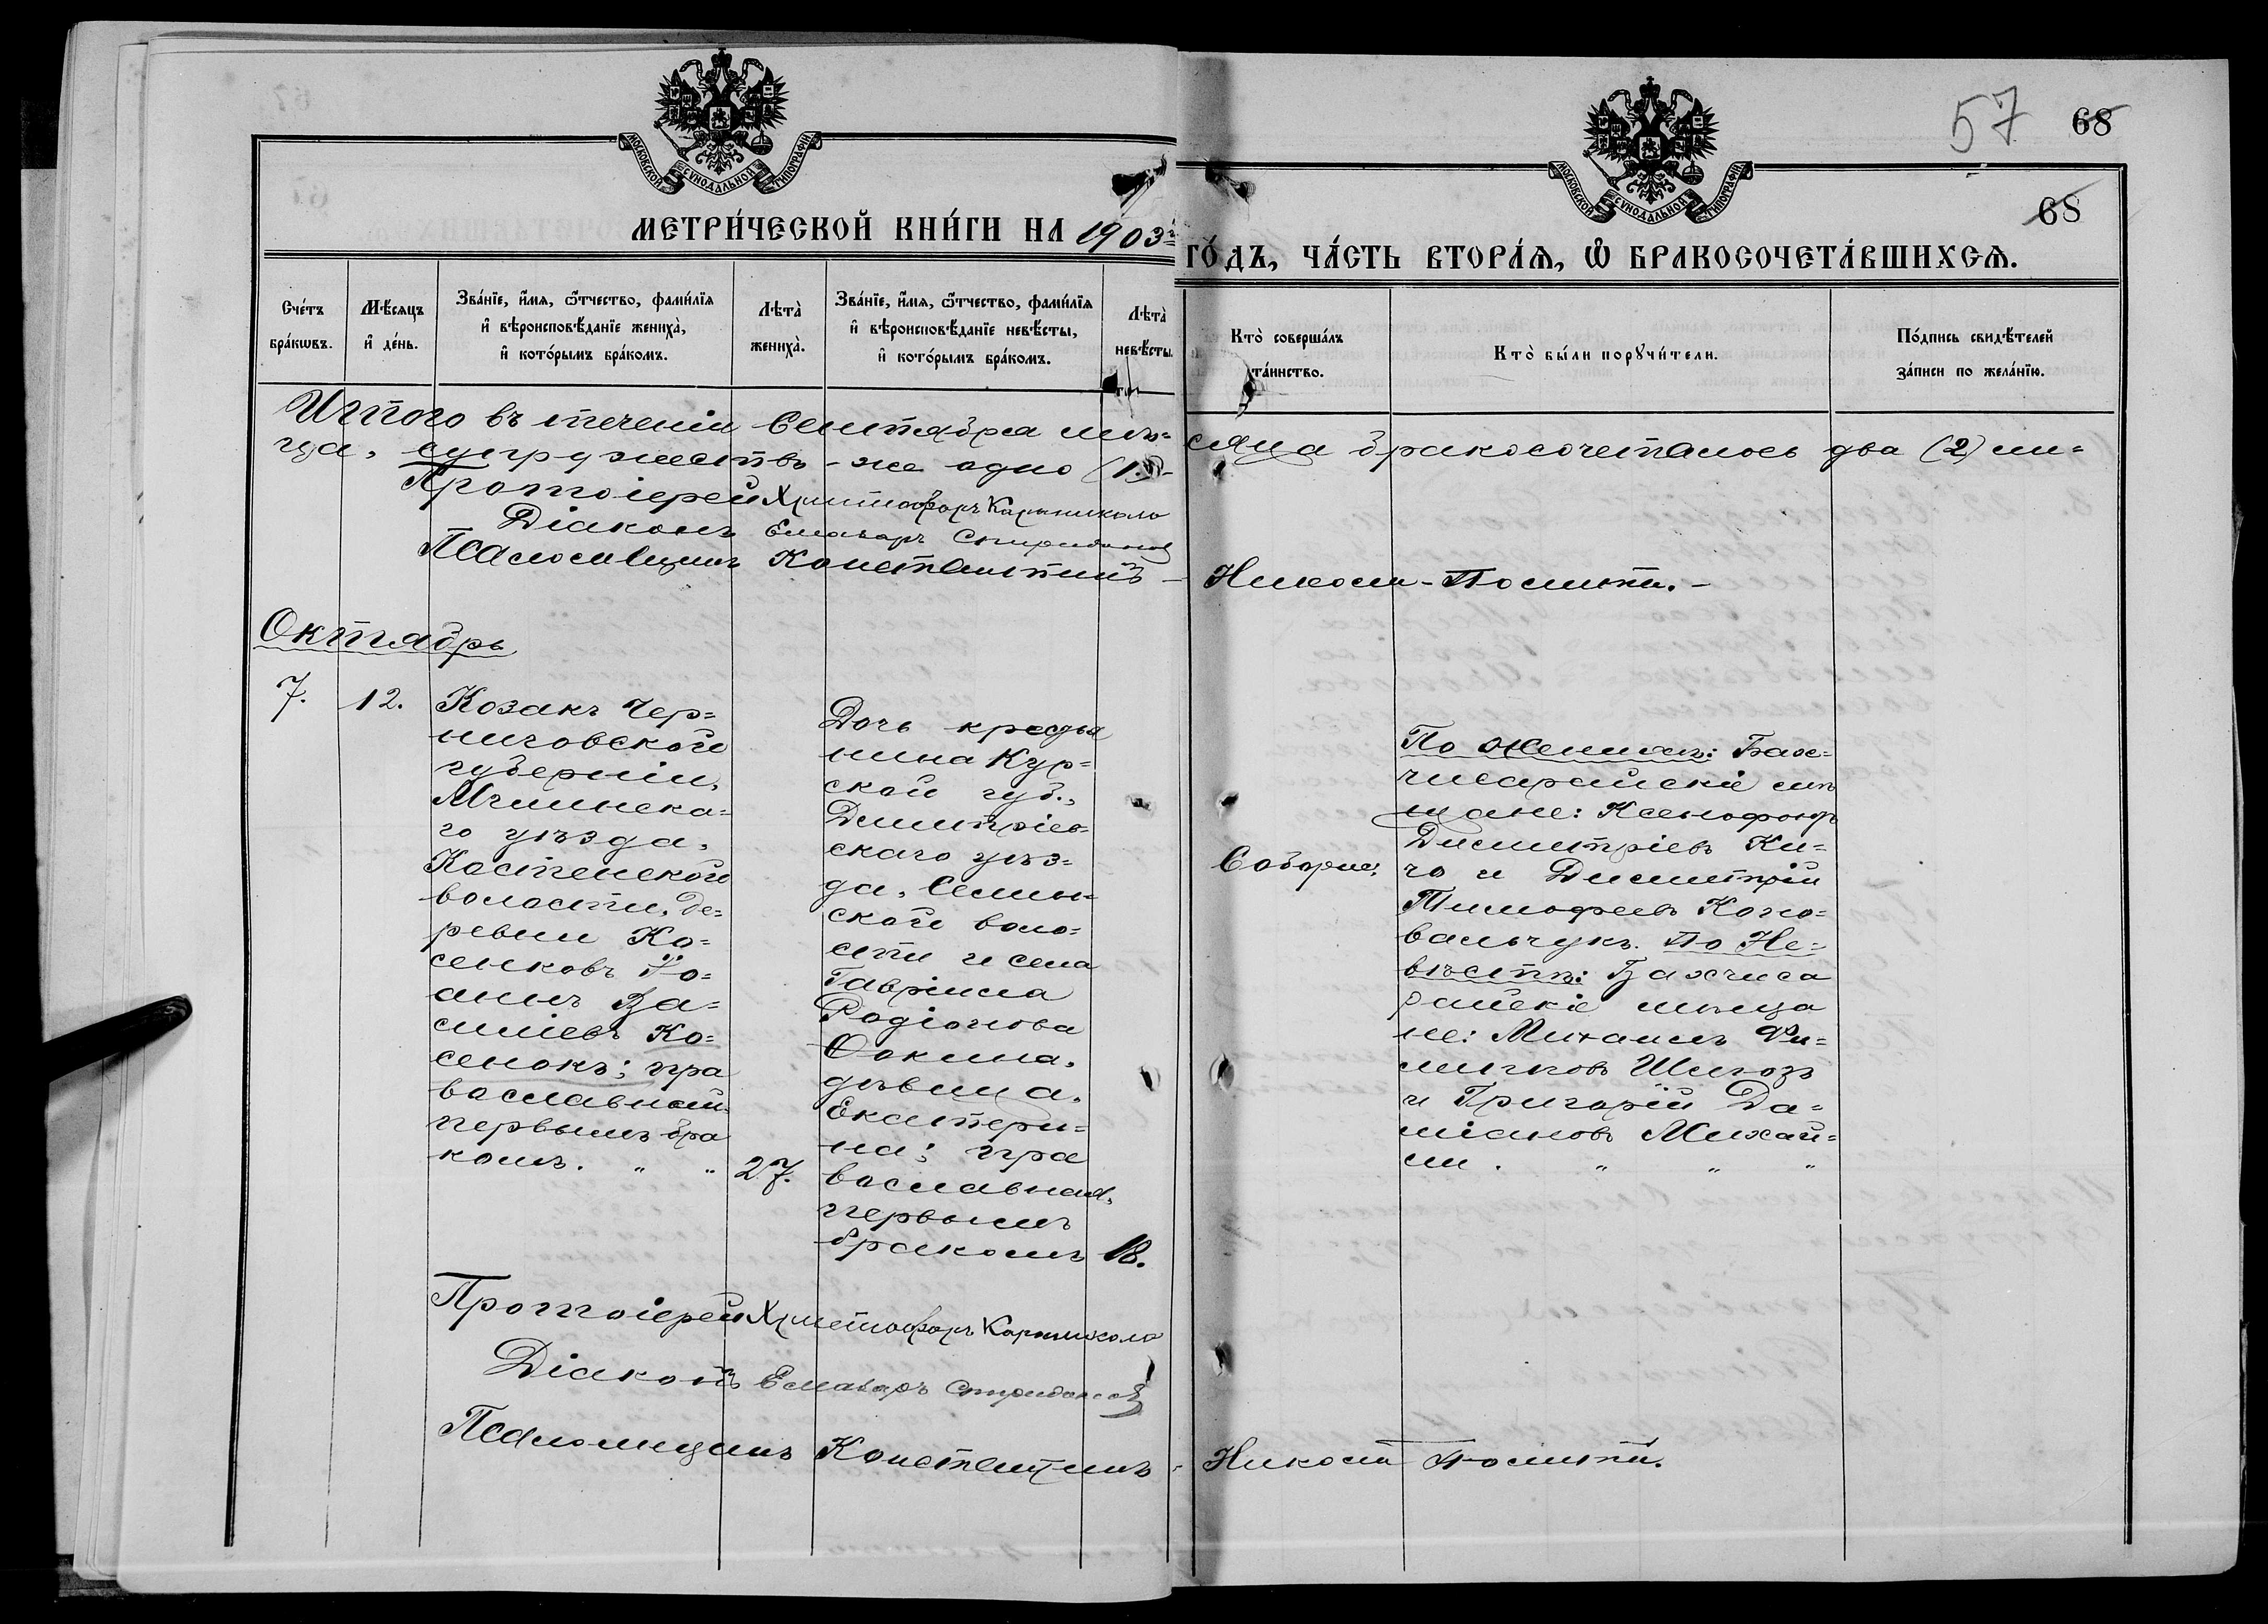 57 68
68
МОСКОВСКОЙ СѴНОДАЛЬНОЙ ТИПОГРАФІИ
МОСКОВСКОЙ СѴНОДАЛЬНОЙ ТИПОГРАФІИ
МЕТРИ́ЧЕСКОЙ КНИ́ГИ НА 1903 г. ГО́ДЪ, ЧА́СТЬ ВТОРА́Ѧ, Ѡ БРАКОСОЧЕТА́ВШИХСѦ.
Сче́тъ бра́кѡвъ.
Мѣ́сѧцъ и҆ де́нь.
Зва́нїе, и҆́мѧ, ѻ҆́тчество, фами́лїѧ
и҆ вѣроисповѣ́данїе жениха̀,
и҆ кото́рымъ бра́комъ.
Лѣта̀ жениха̀.
Зва́нїе, и҆́мѧ, ѻ҆́тчество, фами́лїѧ
и҆ вѣроисповѣ́данїе невѣ́сты,
и҆ кото́рымъ бра́комъ.
Лѣта̀ невѣ́сты.
Кто̀ соверша́лъ
та́инство.
Кто̀ бы́ли порꙋчи́тели.
По́дпись свидѣ́телей
за́писи по жела́нїю.
Итого въ теченіи Сентября мѣ-
сяца бракосочеталось два (2) ли-
ца, супружествъ-же одно (1).
Протоіерей Христофоръ
Діаконъ Спиридоновъ
Псаломщикъ Константинъ - Николи-Полити.-
Октябрь
7.
12.
Козакъ Чер=
ниговской
губерніи,
Мглинска=
го уѣзда,
Костенской
волости, де=
ревни Ко=
сенковъ Іо=
аннъ Ва=
силіевъ Ко=
сенокъ; пра
вославный,
первымъ бра
комъ. " "
27.
Дочь кресть
нина Кур=
ской губ.,
Димитріев=
скаго уѣз=
да,
ской воло=
сти и села
Гавріила
Родіонова
Ѳокина,
дѣвица,
Екатери=
на; пра
вославная,
первымъ
бракомъ
18.
Соборне,
По женихѣ: Бах=
чисарайскіе мѣ
щане: Ксенофонтъ
Димитріевъ Ки=
ро и Димитрій
Тимофеевъ Коно=
вальчукъ. По Не=
вѣстѣ: Бахчиса
райскіе мѣща
не: Михаилъ
и Григорій Да=
міановъ Михай=
ли. " " "
Протоіерей Христофоръ
Діаконъ Спиридоновъ
Псаломщикъ Константинъ - Николи Полити.